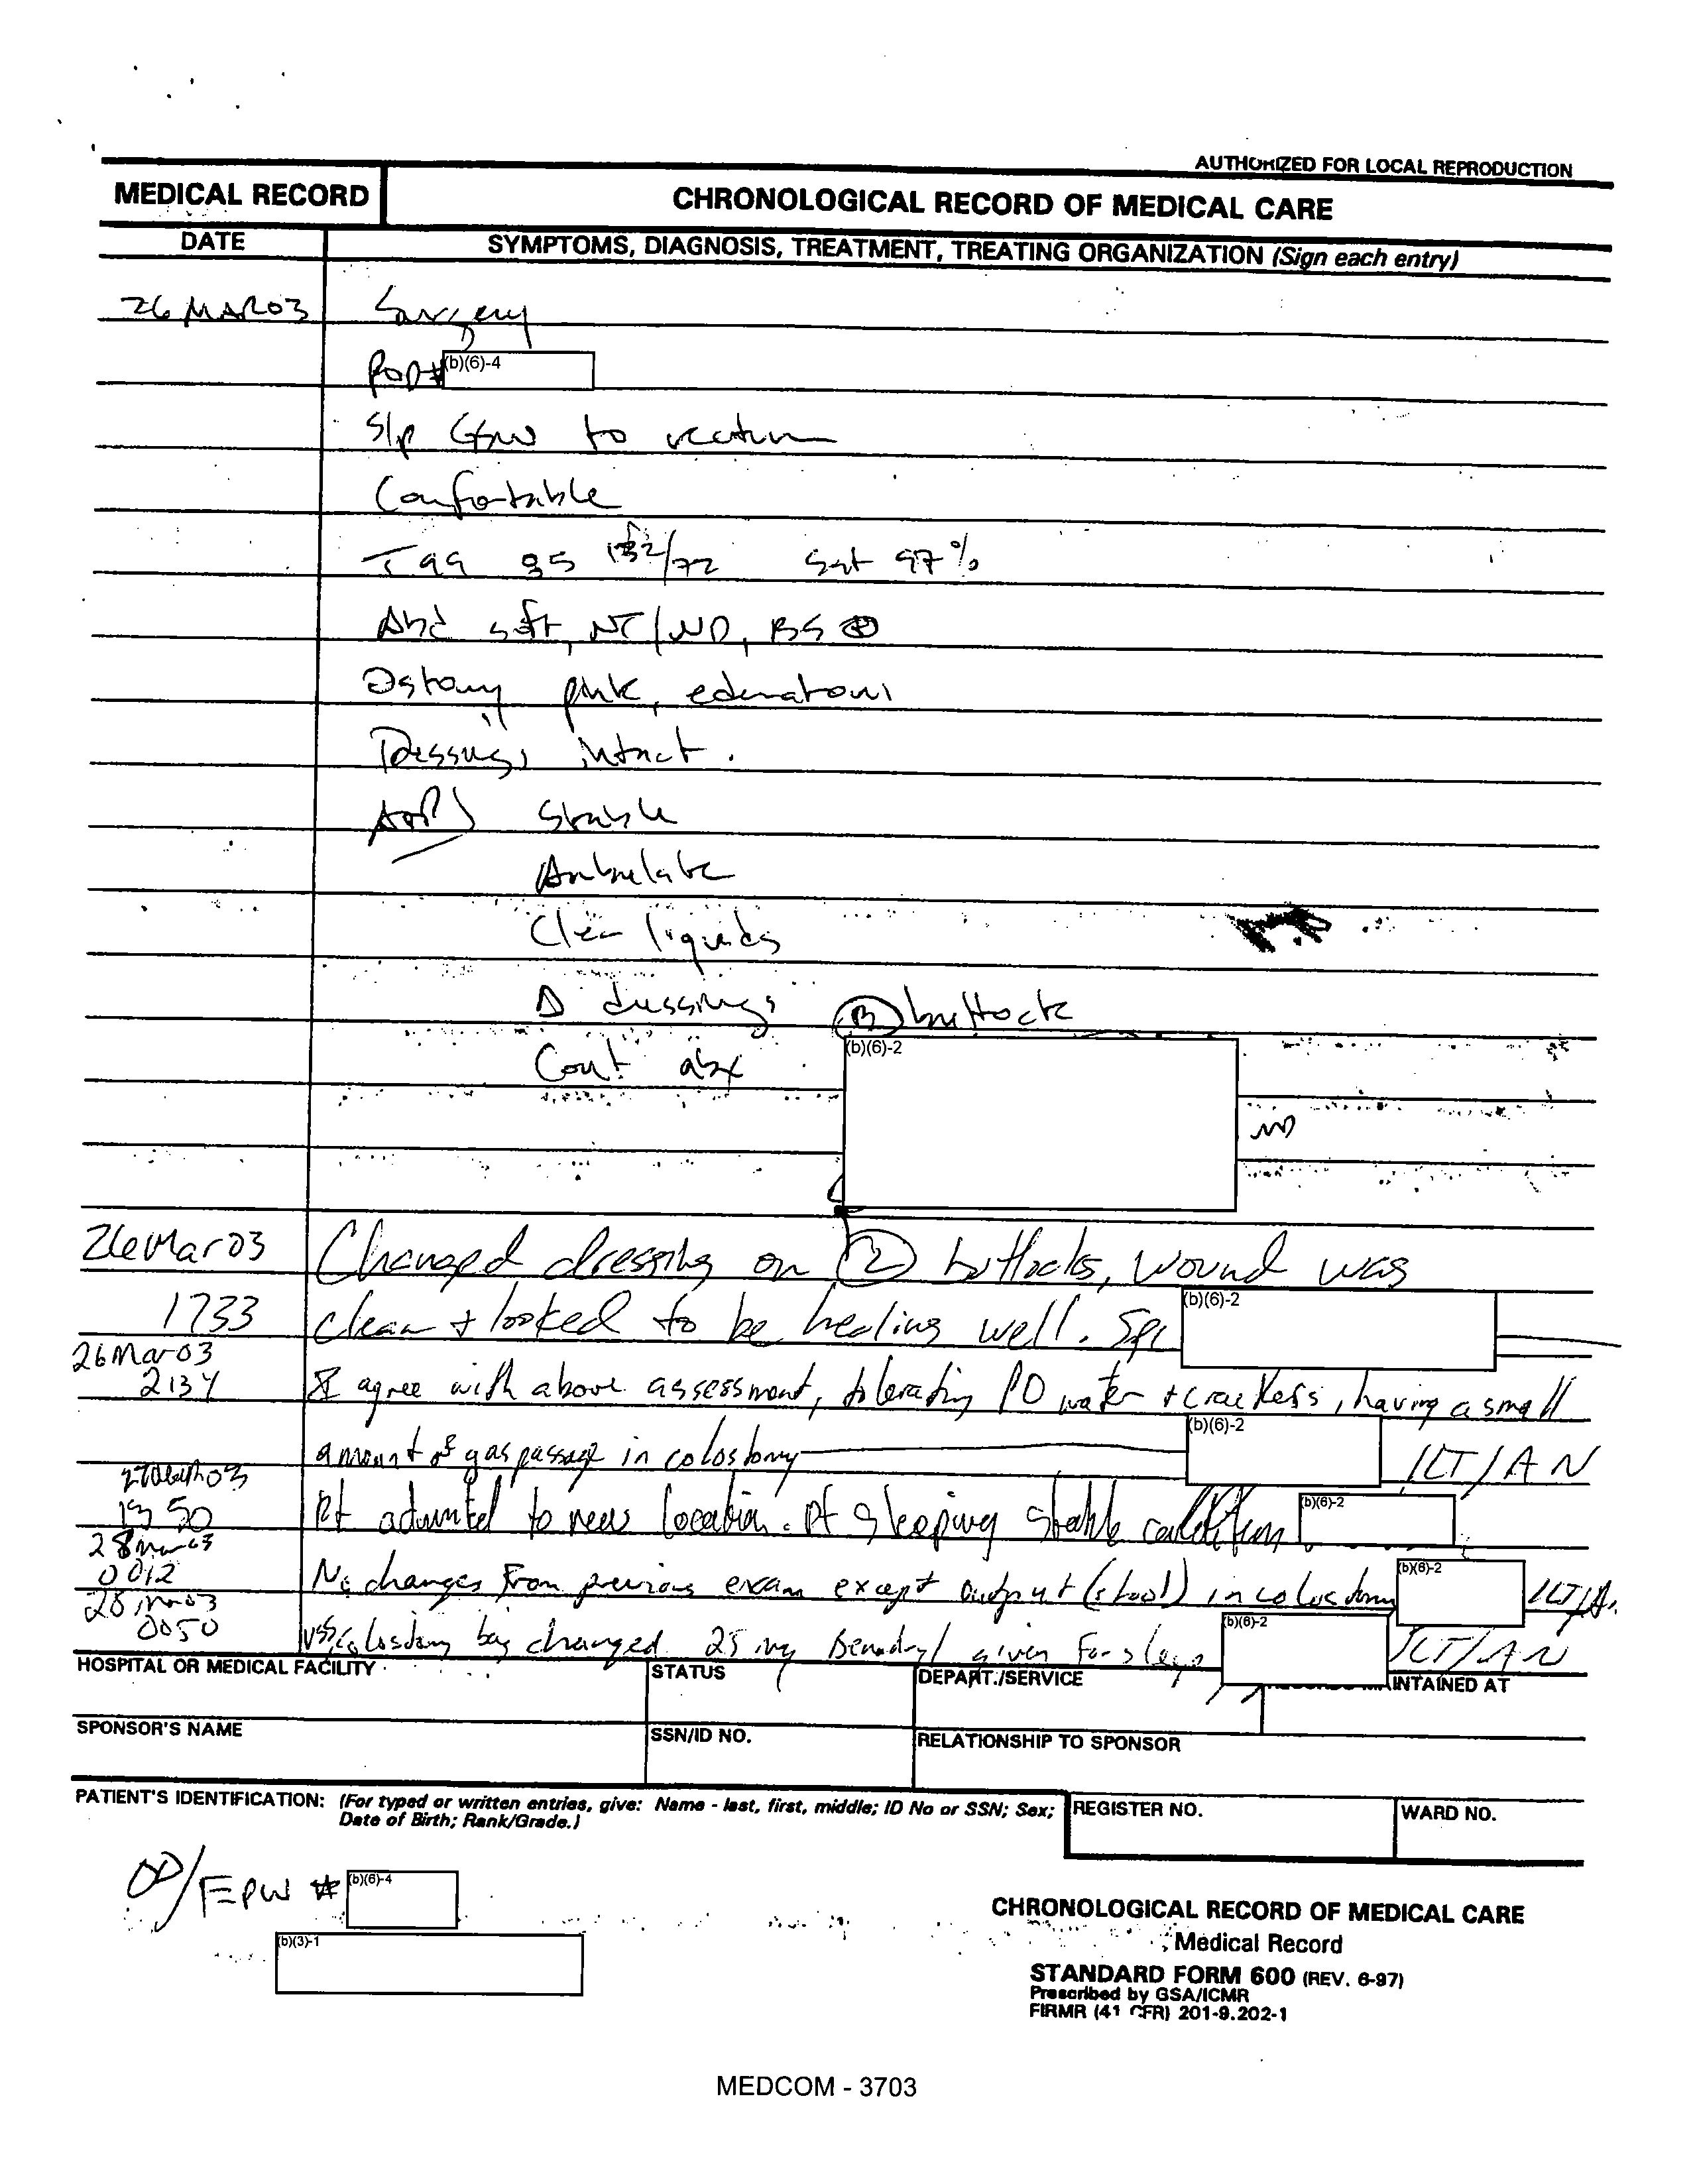 AUTHORIZED FOR LOCAL REPRODUCTION
MEDICAL RECORD
CHRONOLOGICAL RECORD OF MEDICAL CARE
DATE
SYMPTOMS, DIAGNOSIS, TREATMENT, TREATING ORGANIZATION (Sign each entry)
26 MAR03 Surgery
POD# (b)(6)-4
S/p GSW to rectum
Comfortable
T 99 85 132/72 Sat 97%
Abd soft, NT/ND, BS ⊕
Ostomy pink, edematous
Dressings intact.
A+P) Stable
Ambulate
Clear liquids
Δ dressings Ⓑ buttock
Cont abx (b)(6)-2
MD
26Mar03 Changed dressing on ② buttocks, wound was
1733 clean + looked to be healing well. Spc (b)(6)-2
26Mar03
2134 I agree with above assessment, tolerating PO water + crackers, having a small
amount of gas passage in colostomy (b)(6)-2 1LT/AN
27 03
1950 Pt admitted to new location. Pt sleeping stable condition (b)(6)-2
28Mar03
0012 No changes from previous exam except output (stool) in colostomy (b)(6)-2 1LT/A
28Mar03
0050 VSS, colostomy bag changed. 25 mg Benadryl given for sleep (b)(6)-2 1LT/AN
HOSPITAL OR MEDICAL FACILITY
STATUS
DEPART./SERVICE
INTAINED AT
SPONSOR'S NAME
SSN/ID NO.
RELATIONSHIP TO SPONSOR
PATIENT'S IDENTIFICATION: (For typed or written entries, give: Name - last, first, middle; ID No or SSN; Sex;
Date of Birth; Rank/Grade.)
REGISTER NO.
WARD NO.
EPW # (b)(6)-4
(b)(3)-1
CHRONOLOGICAL RECORD OF MEDICAL CARE
Medical Record
STANDARD FORM 600 (REV. 6-97)
Prescribed by GSA/ICMR
FIRMR (41 CFR) 201-9.202-1
MEDCOM - 3703